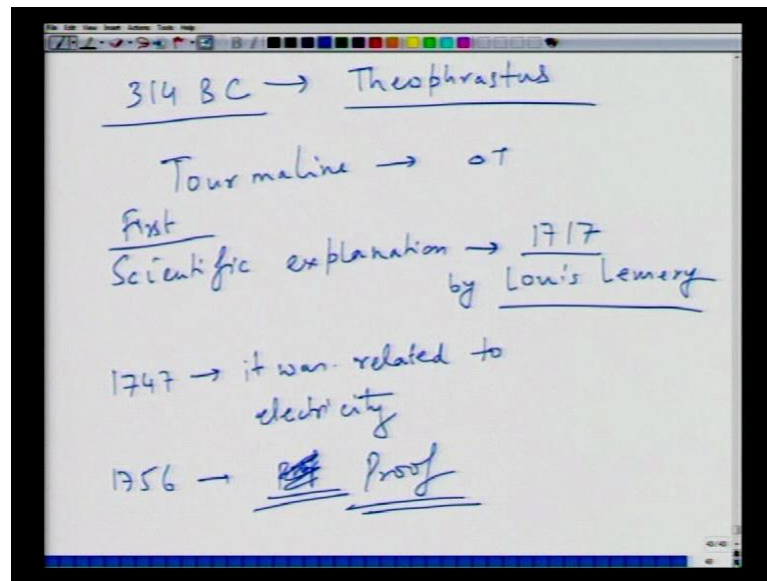 File Edit View Insert Actions Tools Help
314 BC → Theophrastus
Tourmaline → ΔT
First
Scientific explanation → 1717
by Louis Lemery
1747 → it was related to
electricity
1756 → Proof